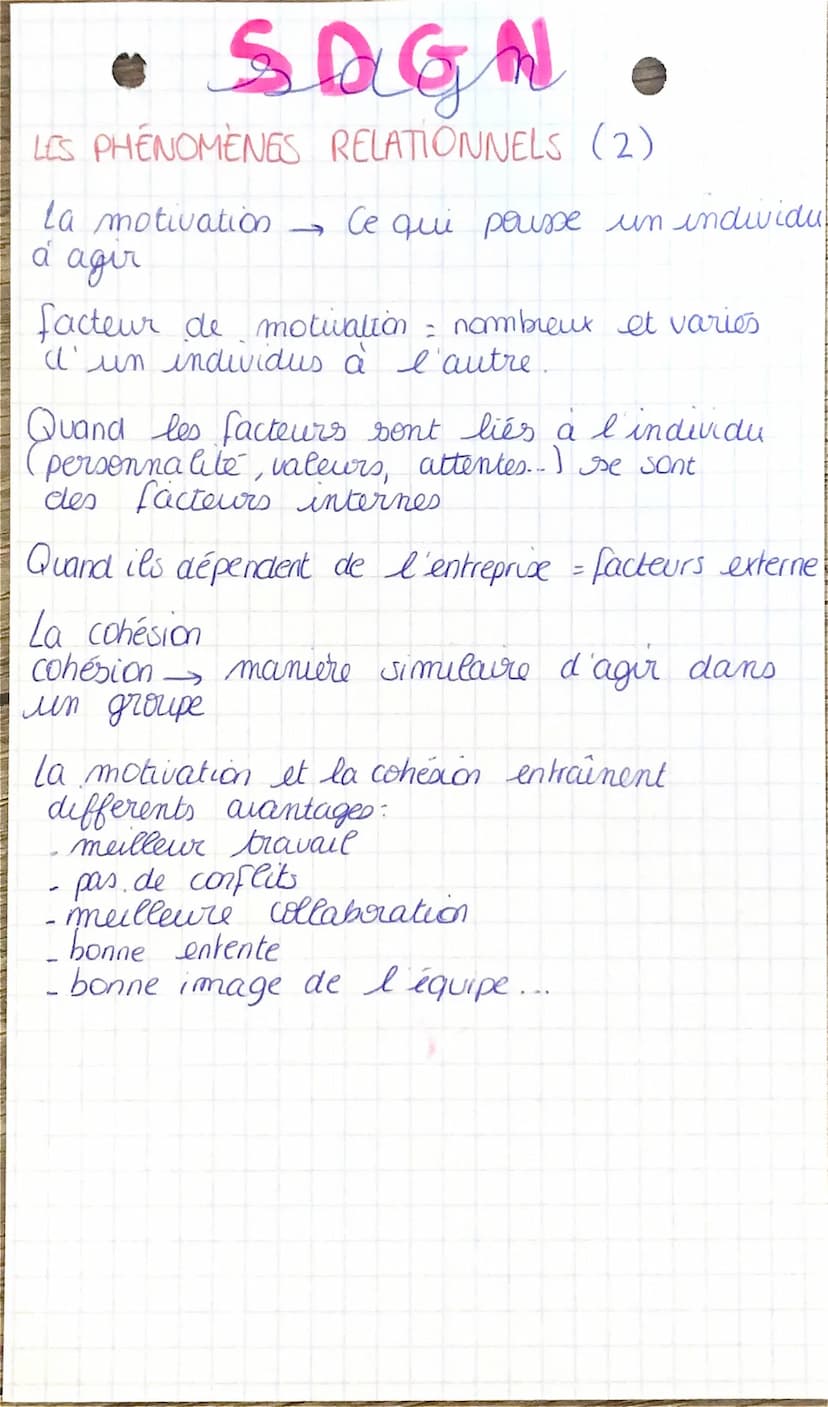 SDGN
sdgn
LES PHÉNOMÈNES RELATIONNELS (2)
La motivation → Ce qui pousse un individu
à agir
facteur de motivation = nombreux et variés
d'un individus à l'autre.
Quand les facteurs sont liés à l'individu
(personnalité, valeurs, attentes...) se sont
des facteurs internes
Quand ils dépendent de l'entreprise = facteurs externe
La cohésion
cohésion → manière similaire d'agir dans
un groupe
La motivation et la cohésion entraînent
differents avantages:
- meilleur travail
- pas de conflits
- meilleure collaboration
- bonne entente
- bonne image de l'équipe...